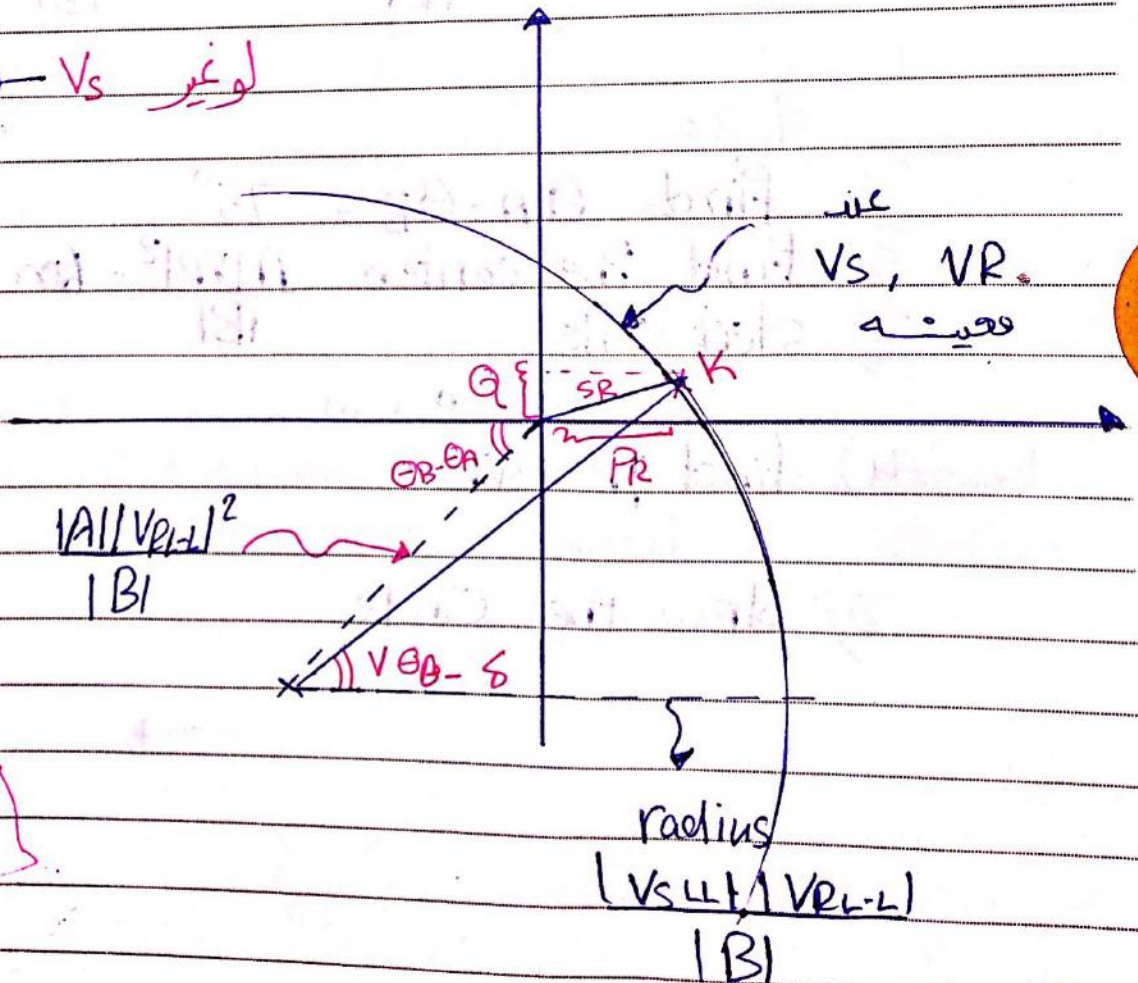 لو غير Vs
عند
Vs, VR.
معينه
K
Q
SR
PR
θB-θA
|A||VRL-L|²
|B|
√ θB - δ
radius
|VS LL| |VRL-L|
|B|